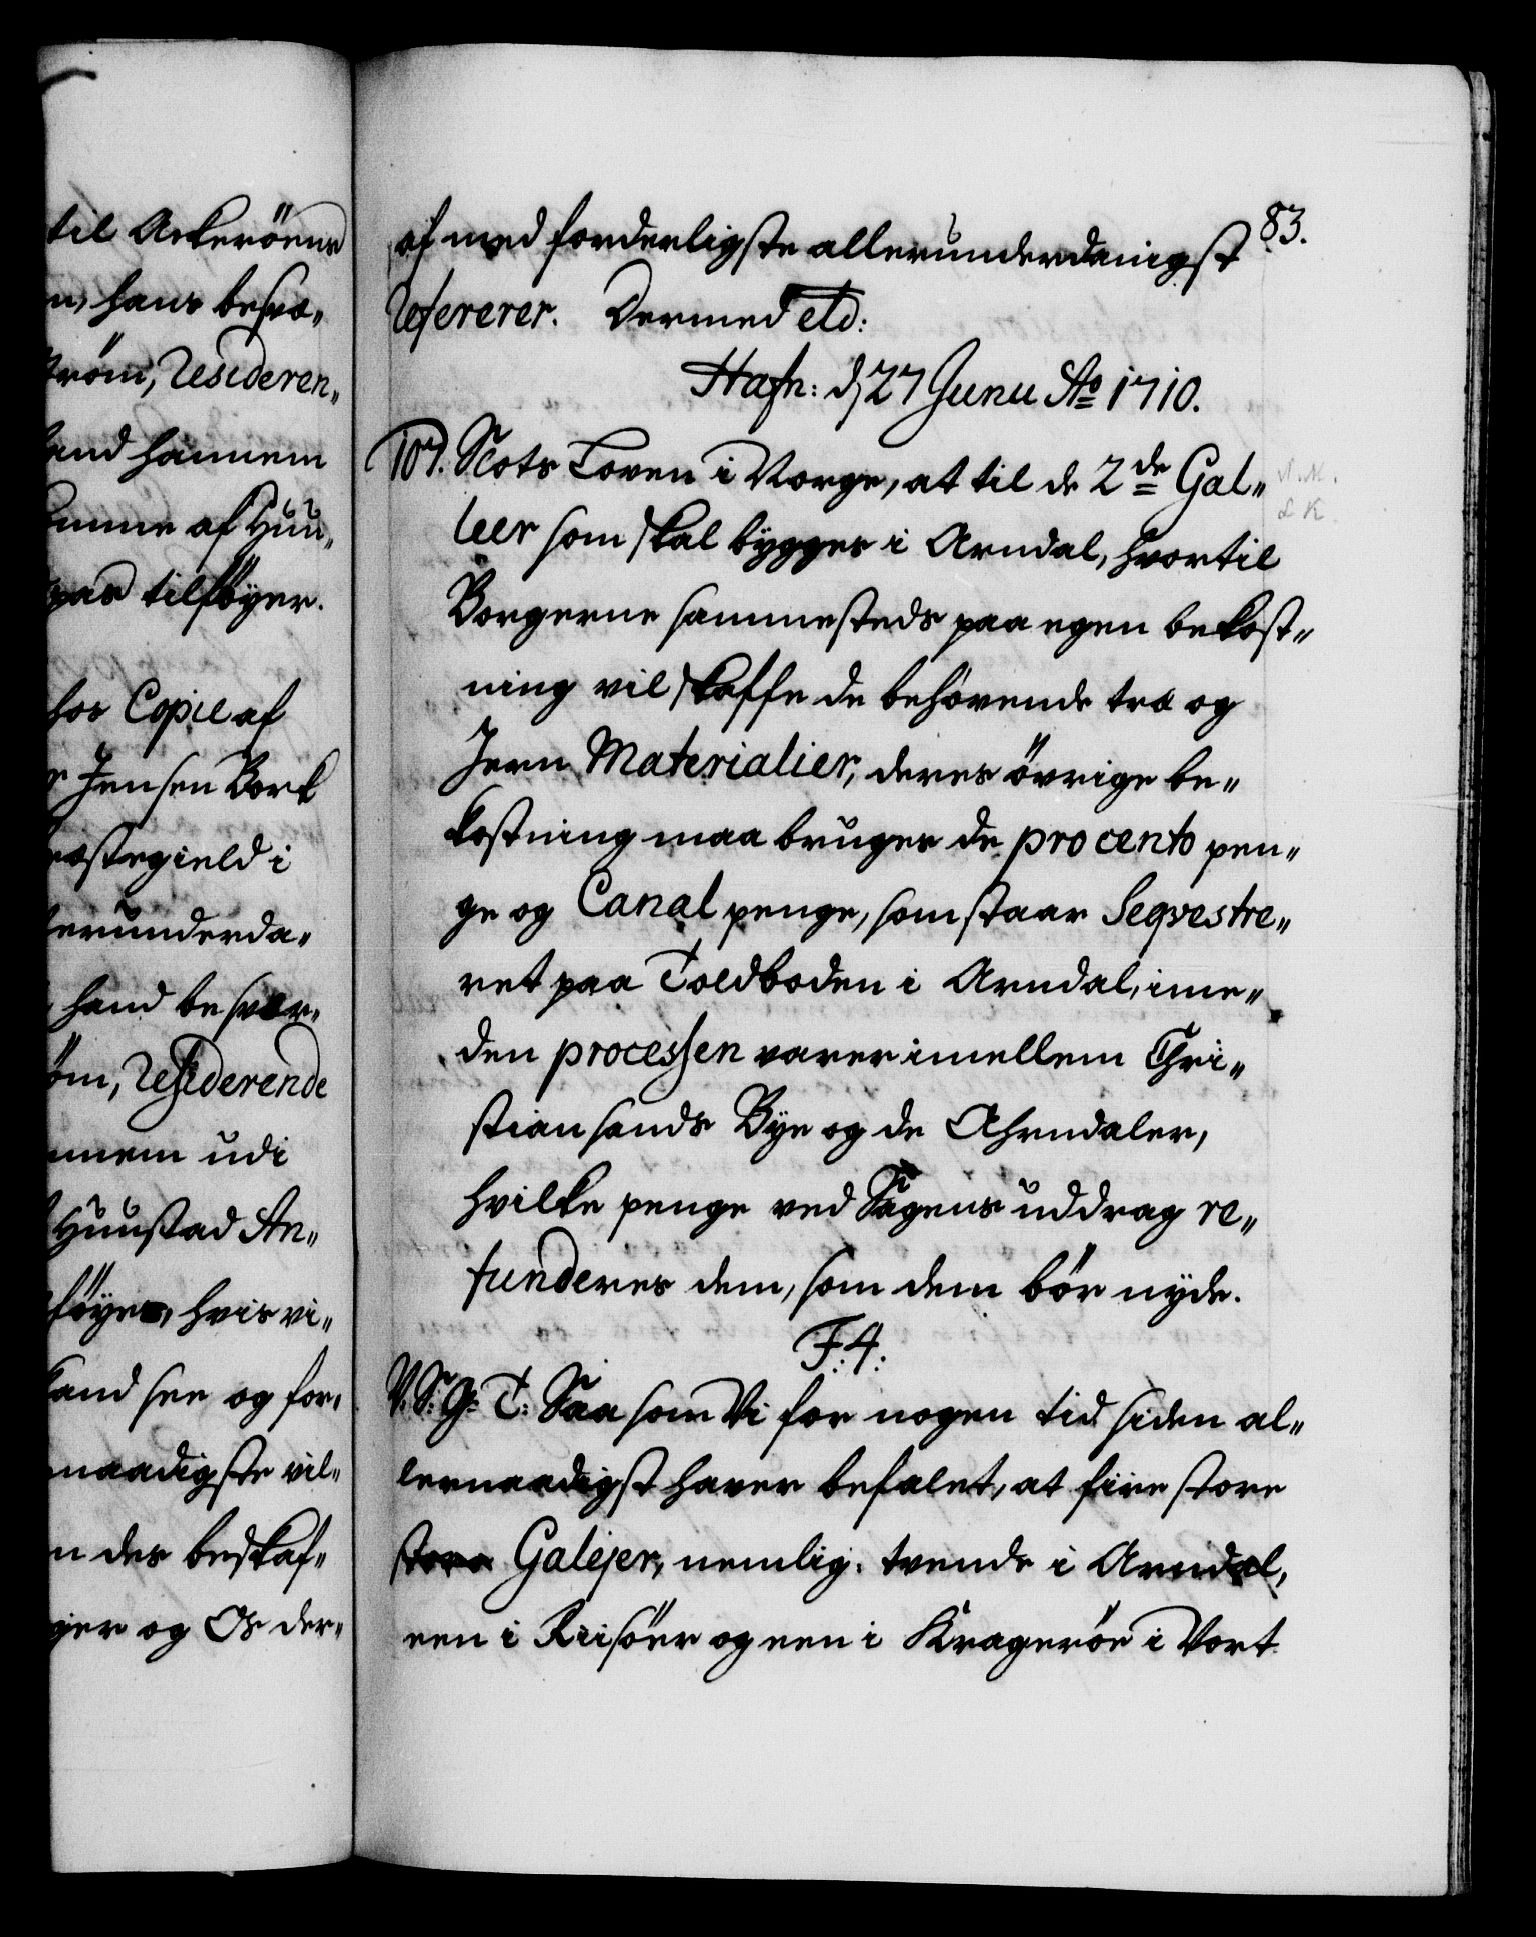 til Akerøens
n, hans besvæ„
trøm, Resideren„
and hannem
omme af Huu„
pas tilføyer.
hos Copie af
r Jensen Bork
ræstegield i
erunderda„
hand besvær„
öm, Residerende
nnem udi
Huustad An„
föyes, hvis vi„
kand see og for„
naadigste vil„
n des beskaf„
ger og Os der„
83.
af med forderligste allerunderdanigst
refererer. Dermed etc:
Hafn: d 27 Junii Ao 1710.
107. Slots Loven i Norge, at til de 2de Gal„
leer som skal bygges i Arndal, hvortil
Borgerne sammesteds paa egen bekost„
ning vil skaffe de behøvende træ og
Jern Materialier, deres övrige be„
kostning maa bruges de procento pen„
ge og Canal penge, som staar Seqvestre„
ret paa Toldboden i Arndal, ime„
den processen varer imellem Chri„
stiansands Bye og de Ahrndaler,
hvilke penge ved Sagens uddrag re„
funderes dem, som dem bör nyde.
F: 4:
V. S: G: T: Saa som Vi for nogen tid siden al„
lernaadigst haver befalet, at fire store
store Galejer, nemlig: tvende i Arndal,
een i Riisöer og een i Kragerøe i Vort